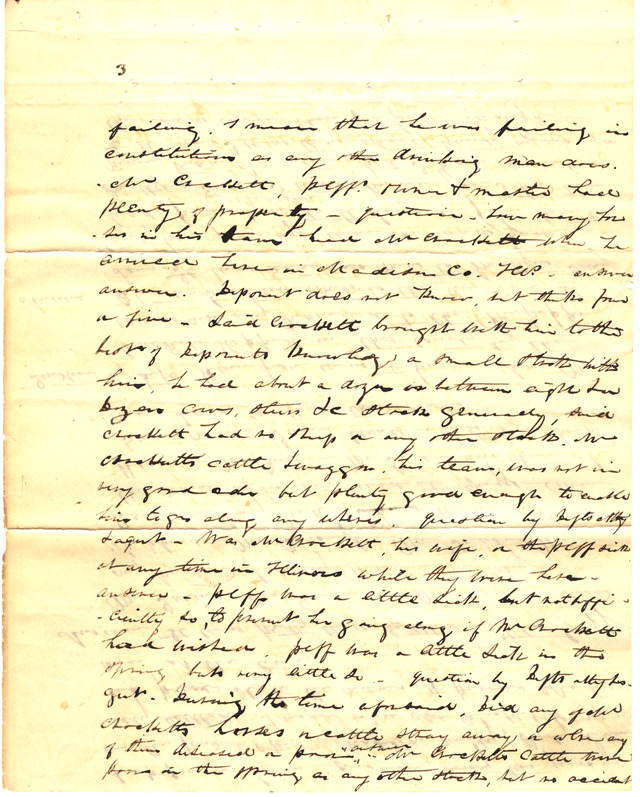 3
failing. I mean that he was failing in
constitution as any other drinking man does.
Mr Crockett, plffs. owner & master had
plenty of property – question – how many hor
ses in his team had Mr Crockett when he
arrived here in Madison Co. Ills. – answer
answer. Deponent does not know, but thinks four
or five – Said Crockett brought with him to the
best of Deponents knowledge a small stock with
him, he had about a dozen or between eight &
Dozen cows, steers &c stock generally, said
Crockett had no sheep or any other stock. Mr
Crocketts cattle & waggon, his team, was not in
very good order but plenty good enough to enable
him to go along any wheres. question by Defts atty
& agent – Was Mr Crockett, his wife, or the plff sick
at any time in Illinois while they were here –
answer – plff was a little sick, but not suffi-
-ciently so, to prevent her going along if Mr Crockett
had wished. plff was a little sick in the
spring but very little so – question by Defts atty & a-
gent. During the time aforesaid, did any of Mr
Crocketts horses or cattle stray away or were any
of them diseased or poor – answer – Mr Crocketts cattle were
poor in the spring as any other stock, but no accident